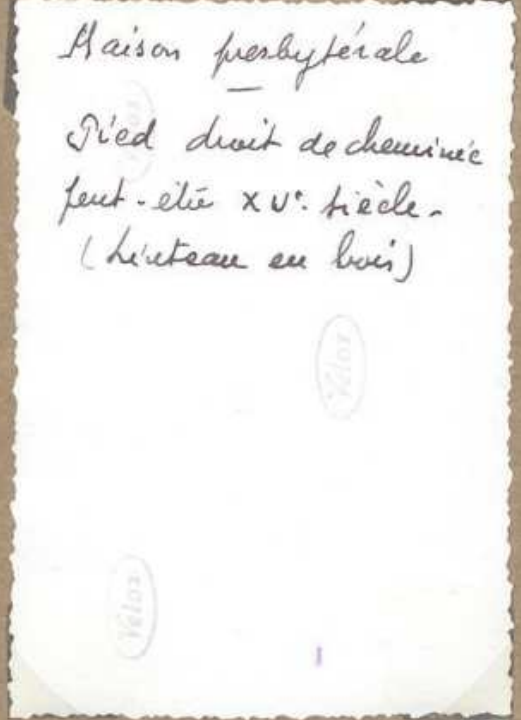 Maison presbytérale
Pied droit de cheminée
peut-être XVe. siècle.
(Linteau en bois)
Velox
Velox
Velox